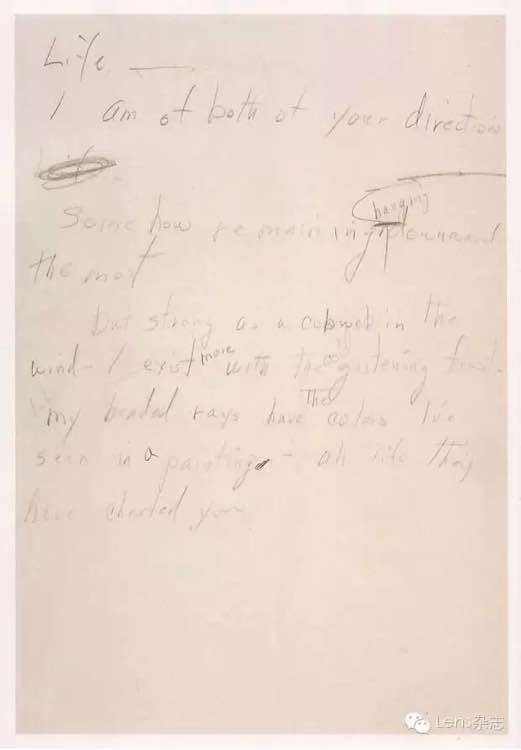 Life —
I am of both of your directions
Life
Somehow remaining hanging downward
the most
but strong as a cobweb in the
wind – I exist more with the cold glistening frost.
my beaded rays have the colors I've
seen in a painting – ah life they
have cheated you
Lens杂志